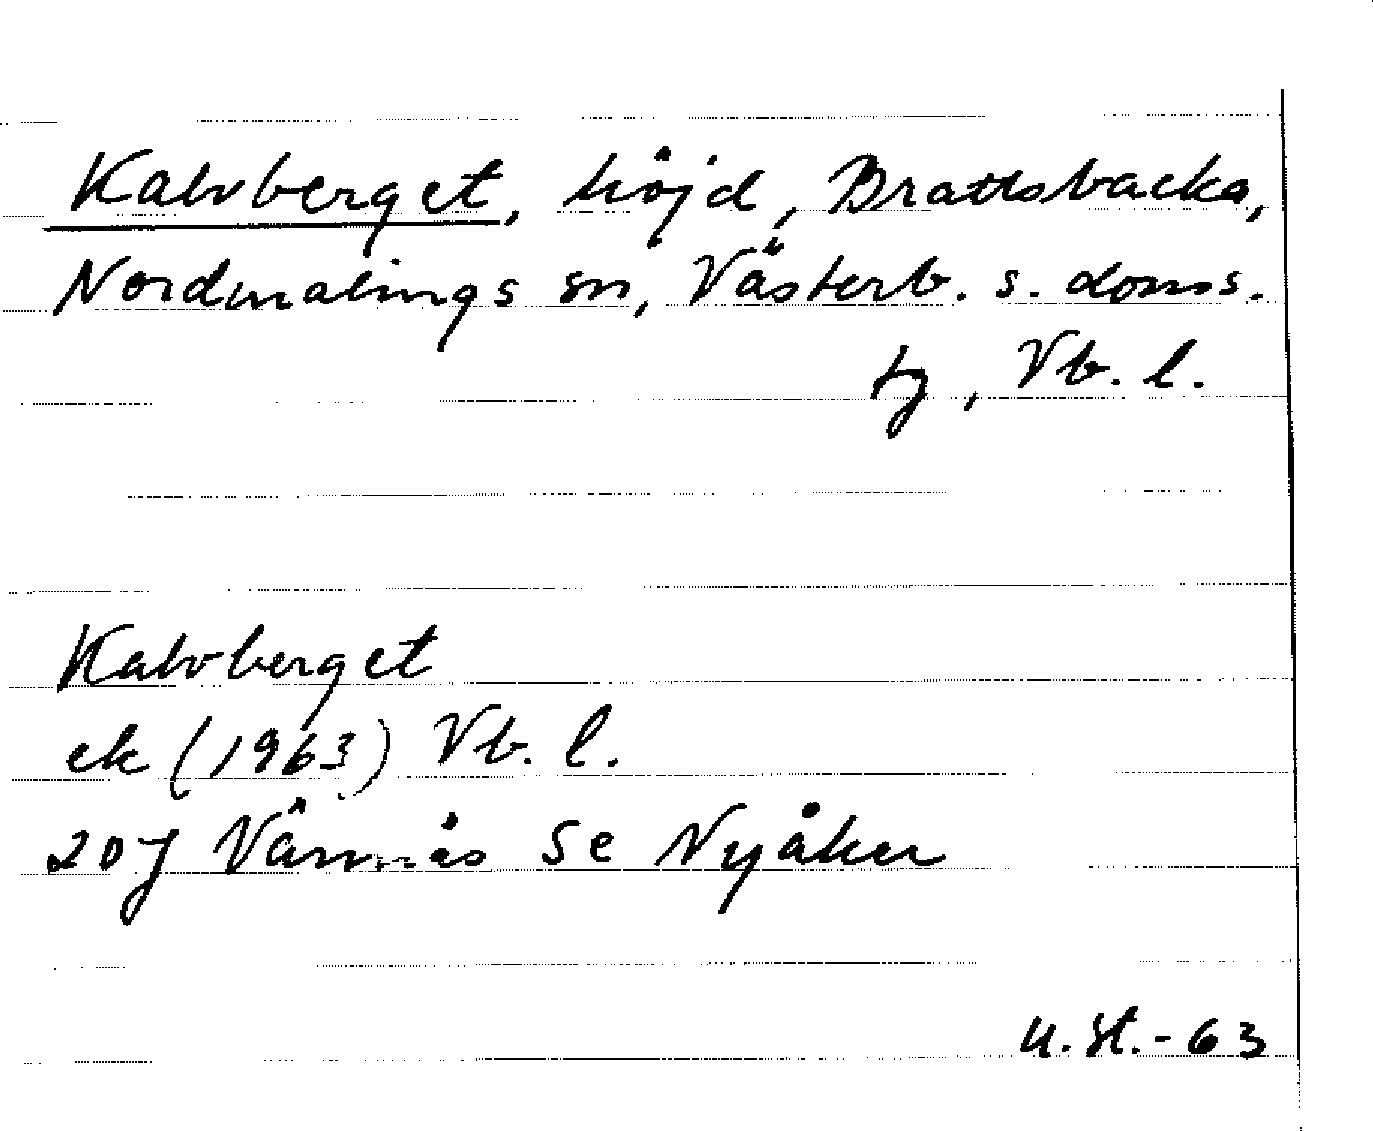 Kalvberget, höjd, Brattsbacka,
Nordmalings sn, Västerb. s. doms.
tg, Vb. l.
Kalvberget
ek (1963) Vb. l.
20J Vännäs SE Nyåker
U. St. - 63